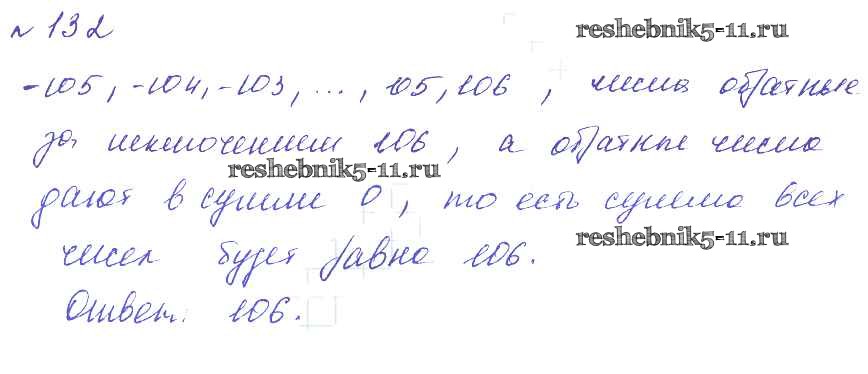 № 132
reshebnik5-11.ru
-105, -104, -103, ..., 105, 106, числа обратные
за исключением 106, а обратные числа
reshebnik5-11.ru
дают в сумме 0, то есть сумма всех
reshebnik5-11.ru
чисел будет равна 106.
Ответ: 106.